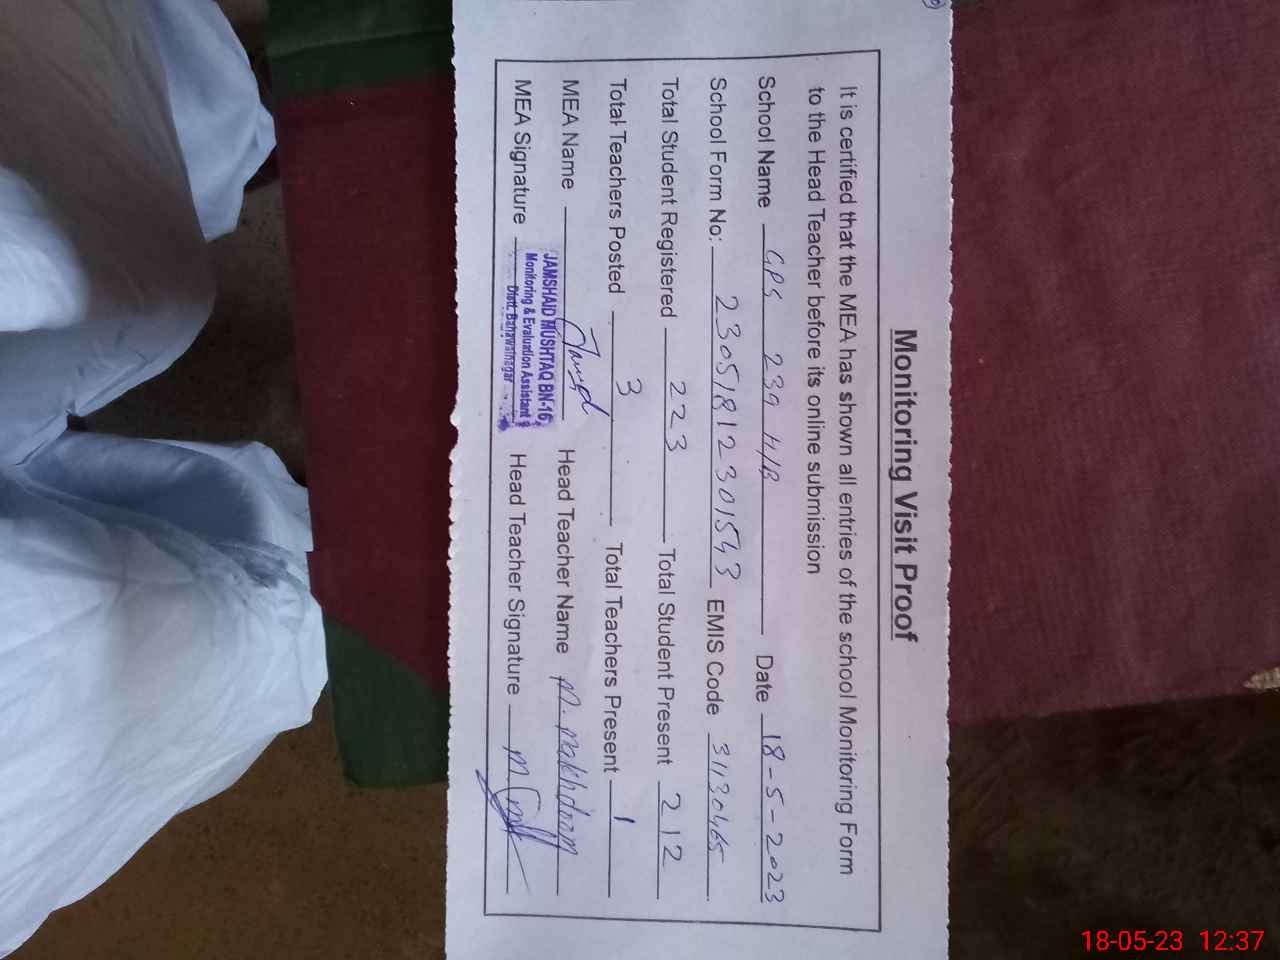 Monitoring Visit Proof
It is certified that the MEA has shown all entries of the school Monitoring Form
to the Head Teacher before its online submission
School Name GPS 239 H/B Date 18-5-2023
School Form No: 23051812301543 EMIS Code 31130465
Total Student Registered 223 Total Student Present 212
Total Teachers Posted 3 Total Teachers Present 1
MEA Name Head Teacher Name M. Makhdoom
JAMSHAID MUSHTAQ BN-16
Monitoring & Evaluation Assistant
Distt. Bahawalnagar
MEA Signature Head Teacher Signature
18-05-23 12:37